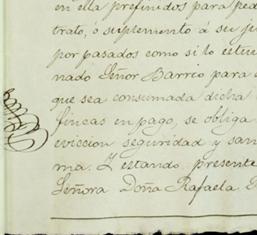 en ella prefinidos para ped
trato, ó suplemento á su ju
por pasados como si lo estu
nado Señor Barrio para
que sea consumada dicha
fincas en pago, se obliga
eviccion seguridad y san
ma. Y estando presente
Señora Doña Rafaela